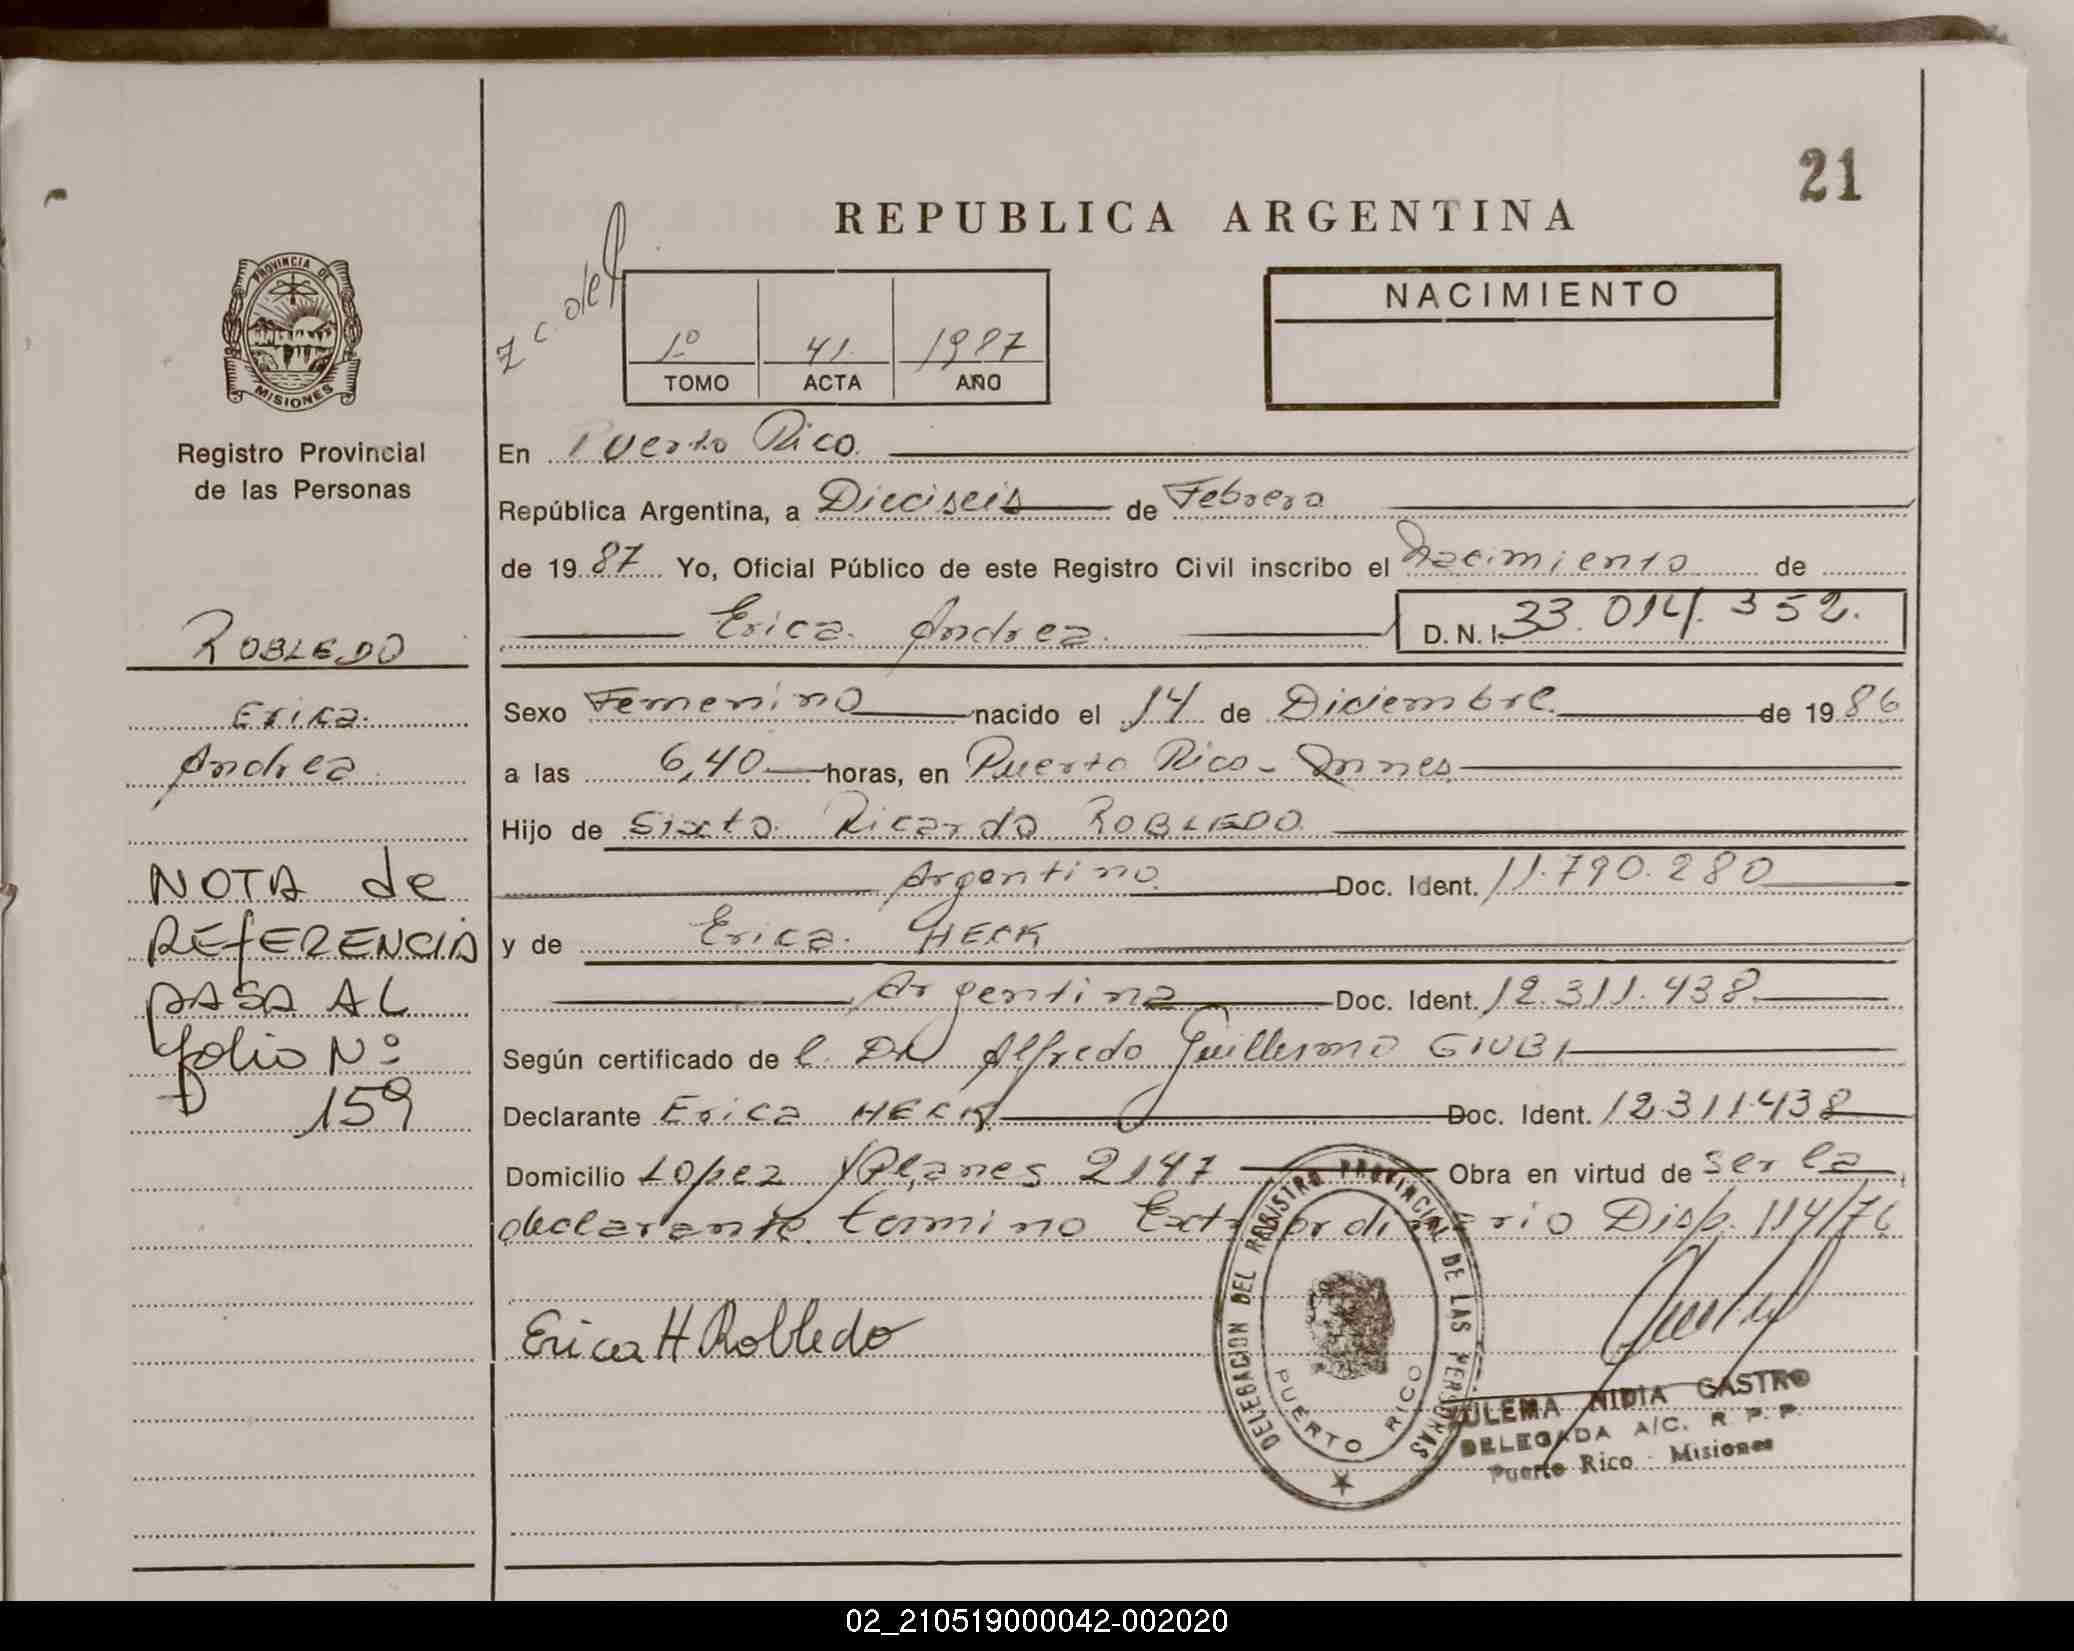 21
REPUBLICA ARGENTINA
PROVINCIA DE
MISIONES
Registro Provincial
de las Personas
1º 41 1987
TOMO ACTA AÑO
NACIMIENTO
En Puerto Rico
República Argentina, a Dieciseis de Febrero
de 1987 Yo, Oficial Público de este Registro Civil inscribo el Nacimiento de
Erica Andrea D.N.I. 33.014.352.
ROBLEDO
Erica
Andrea
NOTA de
REfERENCIA
PASA AL
folio Nº
159
Sexo Femenino nacido el 14 de Diciembre de 1986
a las 6,40 horas, en Puerto Rico - Mnes
Hijo de Sixto Ricardo ROBLEDO
Argentino Doc. Ident. 11.790.280
y de Erica HECK
Argentina Doc. Ident. 12.311.438
Según certificado de l. Dr Alfredo Guillermo GIUBI
Declarante Erica HECK Doc. Ident. 12.311.438
Domicilio Lopez y Planes 2147 Obra en virtud de ser la
declarante termino Extraordinario Disp. 114/76
Erica H Robledo
DELEGACION DEL REGISTRO PROVINCIAL DE LAS PERSONAS
PUERTO RICO
ZULEMA NIDIA CASTRO
DELEGADA A/C. R. P. P.
Puerto Rico - Misiones
02_210519000042-002020